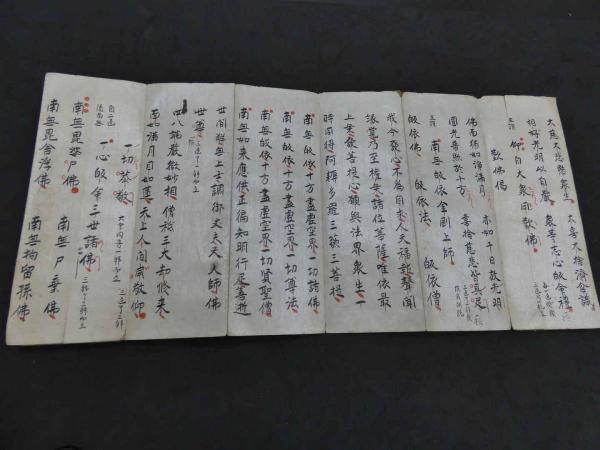 大慈大悲愍眾生 大喜大捨濟含識
相好光明以自嚴 眾等志心皈命禮
仰白大眾同歎佛
歎佛偈
佛面猶如淨滿月 亦如千日放光明
圓光普照於十方 喜捨慈悲皆具足
南無皈依金剛上師
皈依佛 皈依法 皈依僧
我今發心不為自求人天福報聲聞
緣覺乃至權乘諸位菩薩唯依最
上乘發菩提心願與法界眾生一
時同得阿耨多羅三藐三菩提
南無皈依十方盡虛空界一切諸佛
南無皈依十方盡虛空界一切尊法
南無皈依十方盡虛空界一切賢聖僧
南無如來應供正徧知明行足善逝
世間解無上士調御丈夫天人師佛
世尊
四八端嚴微妙相 僧祇三大劫修來
面如滿月目如蓮 天上人間咸敬仰
一切恭敬
一心皈命三世諸佛
南無毘婆尸佛 南無尸棄佛
南無毘舍浮佛 南無拘留孫佛